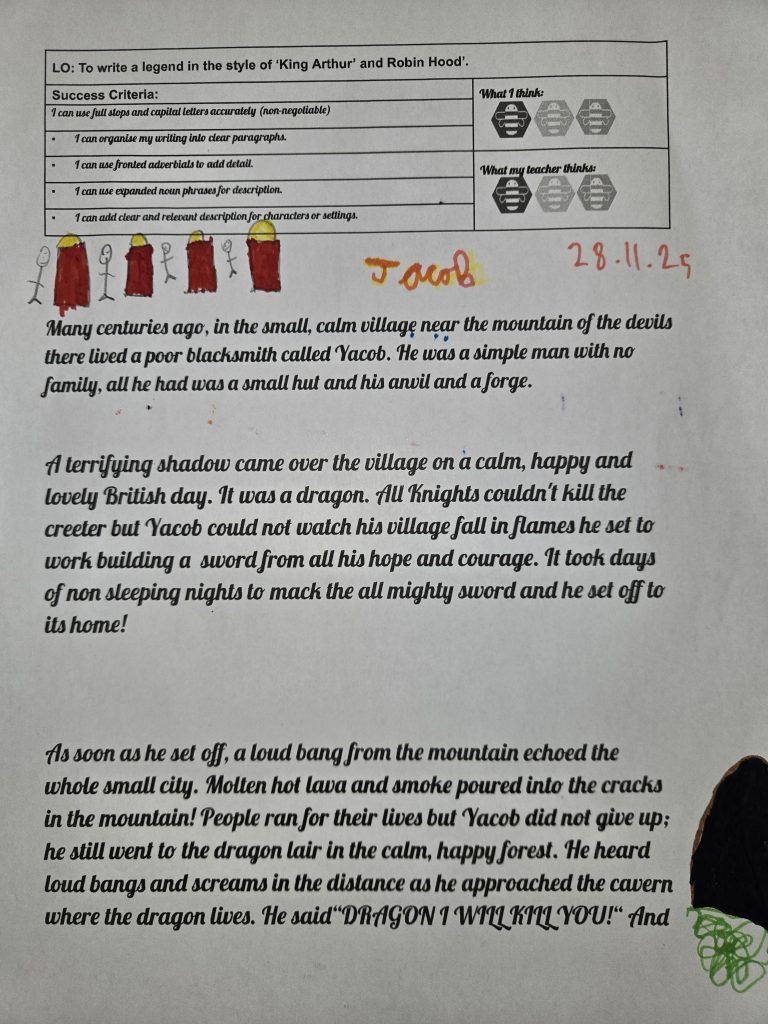 LO: To write a legend in the style of ‘King Arthur’ and Robin Hood’.
Success Criteria:
I can use full stops and capital letters accurately (non-negotiable)
• I can organise my writing into clear paragraphs.
• I can use fronted adverbials to add detail.
• I can use expanded noun phrases for description.
• I can add clear and relevant description for characters or settings.
What I think:
What my teacher thinks:
Jacob
28.11.25
Many centuries ago, in the small, calm village near the mountain of the devils
there lived a poor blacksmith called Yacob. He was a simple man with no
family, all he had was a small hut and his anvil and a forge.
A terrifying shadow came over the village on a calm, happy and
lovely British day. It was a dragon. All Knights couldn't kill the
creeter but Yacob could not watch his village fall in flames he set to
work building a sword from all his hope and courage. It took days
of non sleeping nights to mack the all mighty sword and he set off to
its home!
As soon as he set off, a loud bang from the mountain echoed the
whole small city. Molten hot lava and smoke poured into the cracks
in the mountain! People ran for their lives but Yacob did not give up;
he still went to the dragon lair in the calm, happy forest. He heard
loud bangs and screams in the distance as he approached the cavern
where the dragon lives. He said“DRAGON I WILL KILL YOU!“ And